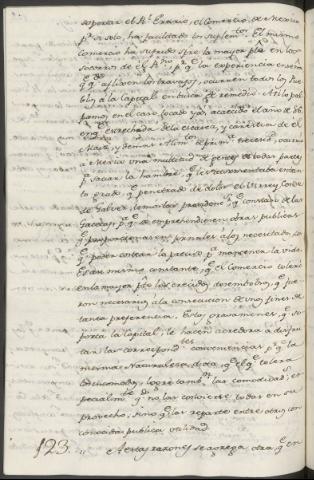 soportar el Rl. Erario, el Comercio de Mexico
pr. si solo, ha facilitado los suplemtos. El mismo
comercio ha sufrido spre. la mayor pte. en los
socorros de el Rno. pr. qe. la experiencia enseña
qe. qdo. afligen los travajos, ocurren todos los Pue-
blos a la Capital en busca de remedio. Asi lo pal-
pamos en el caso locado ya, acaecido el año de 86.
en qe. estrechada de la escases, y carestia de el
Mais, y demas Alimtos. de prima. necesid. ocurrio
a Mexico una multitud de gentes de todas partes
pa. saciar la hambre qe. les atormentaba en tan-
to grado qe. penetrado de dolor el Virrey Conde
de Galvez, tomó las providens. qe. constan de las
Gacetas pa. qe. se emprehendiesen obras publicas
qe. proporcionasen jornales a los necesitados, con
qe. poder costear la precisa pa. mantener la vida.
Es asi mismo constante, qe. el Comercio toleró
en la mayor pte. los crecidos desembolsos, qe. fue-
ron necesarios a la consecucion de unos fines de
tanta preferencia. Estos gravamenes, qe. so-
porta la Capital, le hacen acredora a disfru-
tar las correspondtes. conveniencias, pr. qe. la
misma Naturaleza dicta, qe. el qe. tolera
lo incomodo, logre tambn. las comodidads., es-
pecialmte. si no las convierte todas en su
provecho, sino qe. las reparte entre otros con
conocida publica utilidad.
123. " A estas razones se agrega, otra qe. en